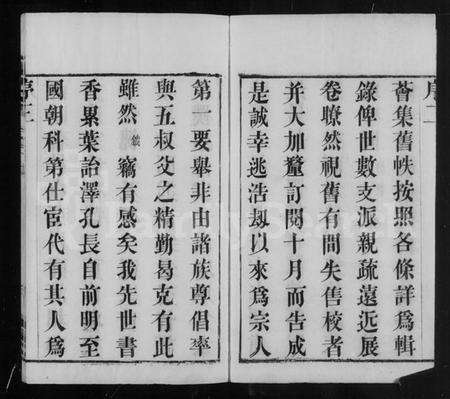 序二
薈集舊帙按照各條詳爲輯
錄俾世數支派親疏遠近展
卷瞭然視舊有間失售校者
幷大加釐訂閱十月而告成
是誠幸逃浩刼以來爲宗人
第一要舉非由諸族尊倡率
與五叔父之精勤曷克有此
雖然竊有感矣我先世書
香累葉詒澤孔長自前明至
國朝科第仕宦代有其人爲
序三